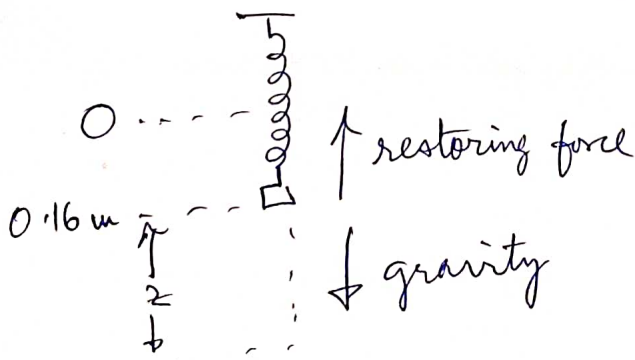 O
restoring force
0.16 m
gravity
z